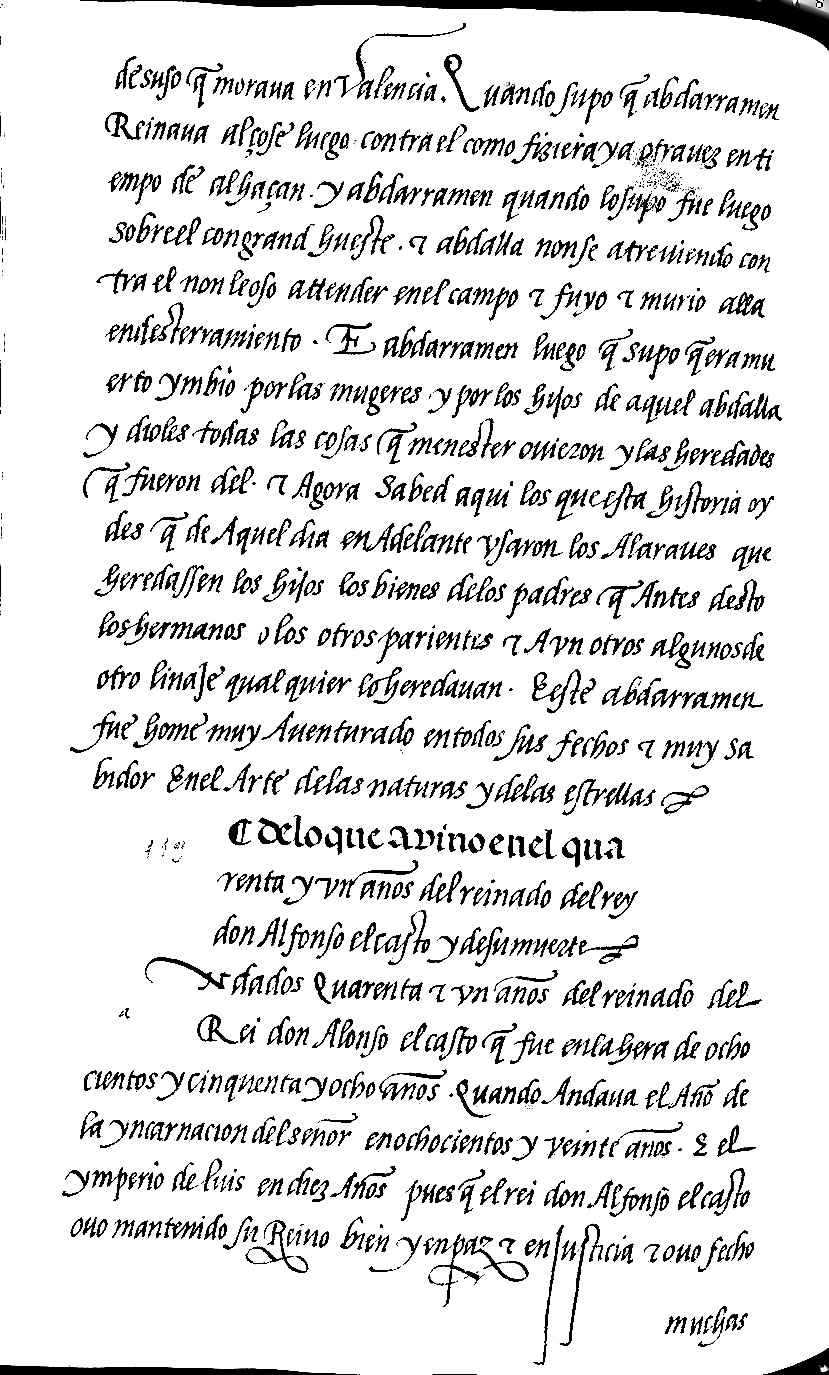 de suso q̃ moraua en Valencia. Quando supo q̃ abdarramen
Reinaua alçose luego contra el como fiziera ya otra uez en ti
empo de alhaçan. y abdarramen quando lo supo fue luego
sobre el con grand hueste. τ abdalla non se atreuiendo con
tra el non le oso attender en el campo τ fuyo τ murio alla
en desterramiento. E abdarramen luego q̃ supo q̃ era mu
erto ymbio por las mugeres y por los hijos de aquel abdalla
y dioles todas las cosas q̃ menester ouieron y las heredades
q̃ fueron del. τ Agora Sabed aqui los que esta historia oy
des q̃ de Aquel dia en Adelante vsaron los Alaraues que
heredassen los hijos los bienes de los padres q̃ Antes desto
los hermanos o los otros parientes τ Avn otros algunos de
otro linaje qual quier lo heredauan. E este abdarramen
fue home muy Auenturado en todos sus fechos τ muy sa
bidor En el Arte de las naturas y de las estrellas
¶ de lo que avino en el qua
renta y vn años del reinado del rey
don Alfonso el casto y de su muerte
119
Andados Quarenta τ vn años del reinado del
a
Rei don Alonso el casto q̃ fue en la hera de ocho
cientos y cinquenta y ocho años. Quando Andaua el Año de
la yncarnacion del señor en ochocientos y veinte años. E el
ymperio de luis en diez Años pues q̃ el rei don Alfonso el casto
ouo mantenido su Reino bien y en paz τ en justicia τ ouo fecho
muchas